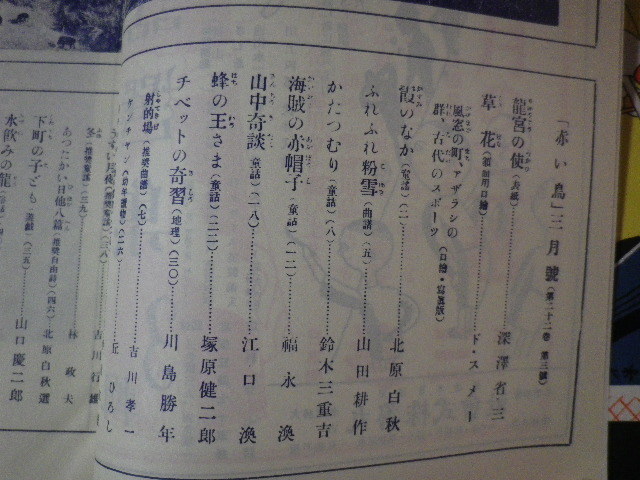 「赤い鳥」三月號 (第二十二卷 第三號)
龍宮の使 (表紙) 深澤省三
草花 ド・スメー
風窓の町、アザラシの
群、古代のスポーツ (口繪・寫眞版)
霞のなか (童謠) (一) 北原白秋
ふれふれ粉雪 (曲譜) (五) 山田耕作
かたつむり (童話) (八) 鈴木三重吉
海賊の赤帽子 (童話) (一二) 福永渙
山中奇談 (童話) (一八) 江口渙
蜂の王さま (童話) (二二) 塚原健二郎
チベットの奇習 (地理) (三〇) 川島勝年
射的場 (推奬曲譜) (七) 吉川孝一
丘ひろし
吉川行雄
冬 (推奬童謠) (三九) 林政夫
あつたかい日他八篇 (推奬自由詩) (四六) 北原白秋選
下町の子ども (三五) 山口慶二郎
水飲みの龍